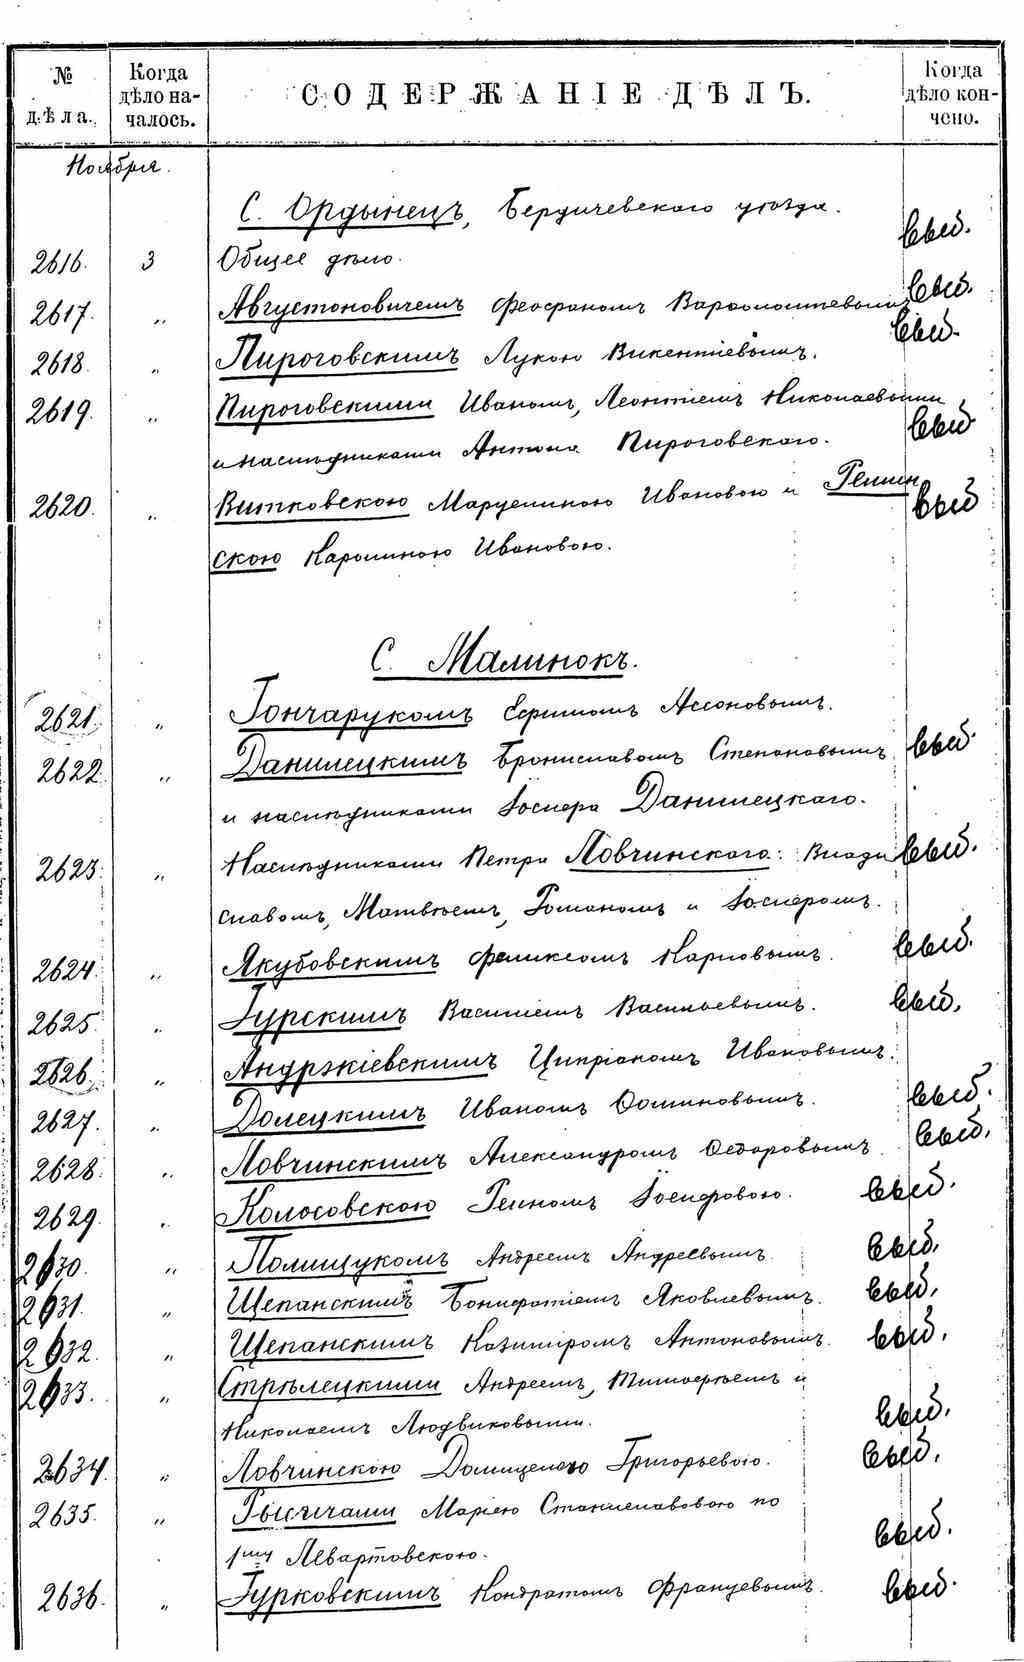 № дѣла.
Когда дѣло началось.
СОДЕРЖАНІЕ ДѢЛЪ.
Когда дѣло кончено.
Ноября.
С. Ордынецъ, Бердичевскаго уѣзда.
2616. 3 Общее дѣло. выб.
2617. „ Августоновичемъ Феофаномъ Варѳоломеевымъ выб.
2618. „ Пироговскимъ Лукою Викентіевымъ. выб.
2619. „ Пироговскими Иваномъ, Леонтіемъ Николаевыми
и наслѣдниками Антона Пироговскаго. выб.
2620. „ Витковскою Марцелиною Ивановою и Релин выб
скою Каролиною Ивановою.
С. Малинокъ.
2621. „ Гончарукомъ Ефимомъ Ассоновымъ.
2622. „ Данилецкимъ Брониславомъ Степановымъ выб.
и наслѣдниками Іосифа Данилецкаго.
2623. „ Наслѣдниками Петра Ловчинскаго: Влади выб.
славомъ, Матвѣемъ, Романомъ и Іосифомъ.
2624. „ Якубовскимъ Феликсомъ Карповымъ. выб.
2625. „ Гурскимъ Василіемъ Васильевымъ. выб.
2626. „ Андржіевскимъ Ципріаномъ Ивановымъ.
2627. „ Долецкимъ Иваномъ Фоминовымъ. выб.
2628. „ Ловчинскимъ Александромъ Федоровымъ выб.
2629. „ Колосовскою Іосифовою. выб.
2630. „ Полищукомъ Андреемъ Андреевымъ. выб.
2631. „ Щепанскимъ Бонифатіемъ Яковлевымъ. выб.
2632. „ Щепанскимъ Казиміромъ Антоновымъ. выб.
2633. „ Стрѣлецкими Андреемъ, Тимофеемъ и
Николаемъ Людвиковыми. выб.
2634. „ Ловчинскою Домицелею Григорьевою. выб.
2635. „ Маріею Станиславовою по
1му Левартовскою. выб.
2636. „ Гурковскимъ Кондратомъ Францевымъ. выб.